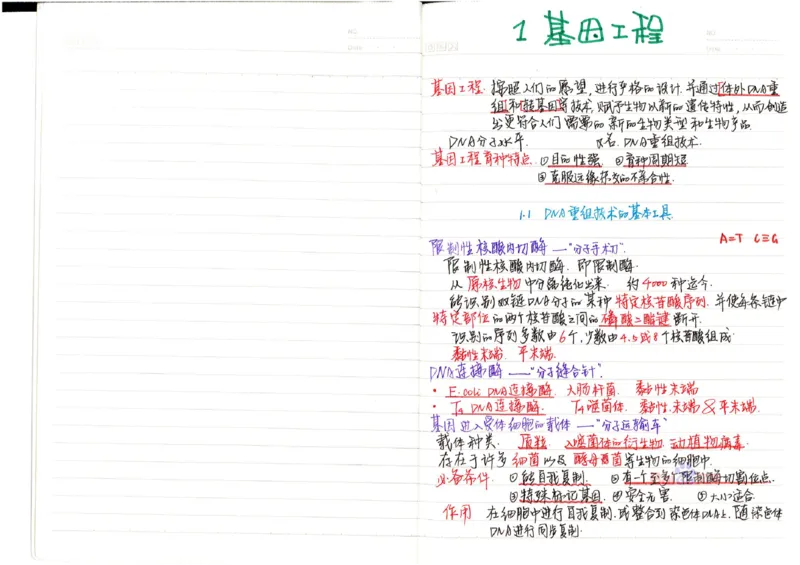 1 基因工程
基因工程 按照人们的愿望,进行严格的设计.并通过体外DNA重
组和转基因等技术,赋予生物以新的遗传特性,从而创造
出更符合人们需要的新的生物类型和生物产品.
DNA分子水平. 又名.DNA重组技术.
基因工程育种特点 ①目的性强. ②育种周期短
③克服远缘杂交的不亲合性.
1.1 DNA重组技术的基本工具
A=T C≡G
限制性核酸内切酶 —"分子手术刀".
限制性核酸内切酶.即限制酶.
从原核生物中分离纯化出来. 约4000种迄今.
能识别双链DNA分子的某种特定核苷酸序列.并使每条链中
特定部位的两个核苷酸之间的磷酸二酯键断开.
识别的序列多数由6个,少数由4.5或8个核苷酸组成.
黏性末端. 平末端.
DNA连接酶 ——"分子缝合针".
· E.coli DNA连接酶. 大肠杆菌. 黏性末端
· T4 DNA连接酶. T4噬菌体. 黏性末端&平末端.
基因进入受体细胞的载体 —"分子运输车"
载体种类. 质粒. λ噬菌体的衍生物.动植物病毒.
存在于许多细菌以及酵母菌等生物的细胞中.
必备条件. ①能自我复制. ②有一个至多个限制酶切割位点.
③特殊标记基因. ④安全无害. ⑤大小适合.
作用 在细胞中进行自我复制.或整合到染色体DNA上.随染色体
DNA进行同步复制.